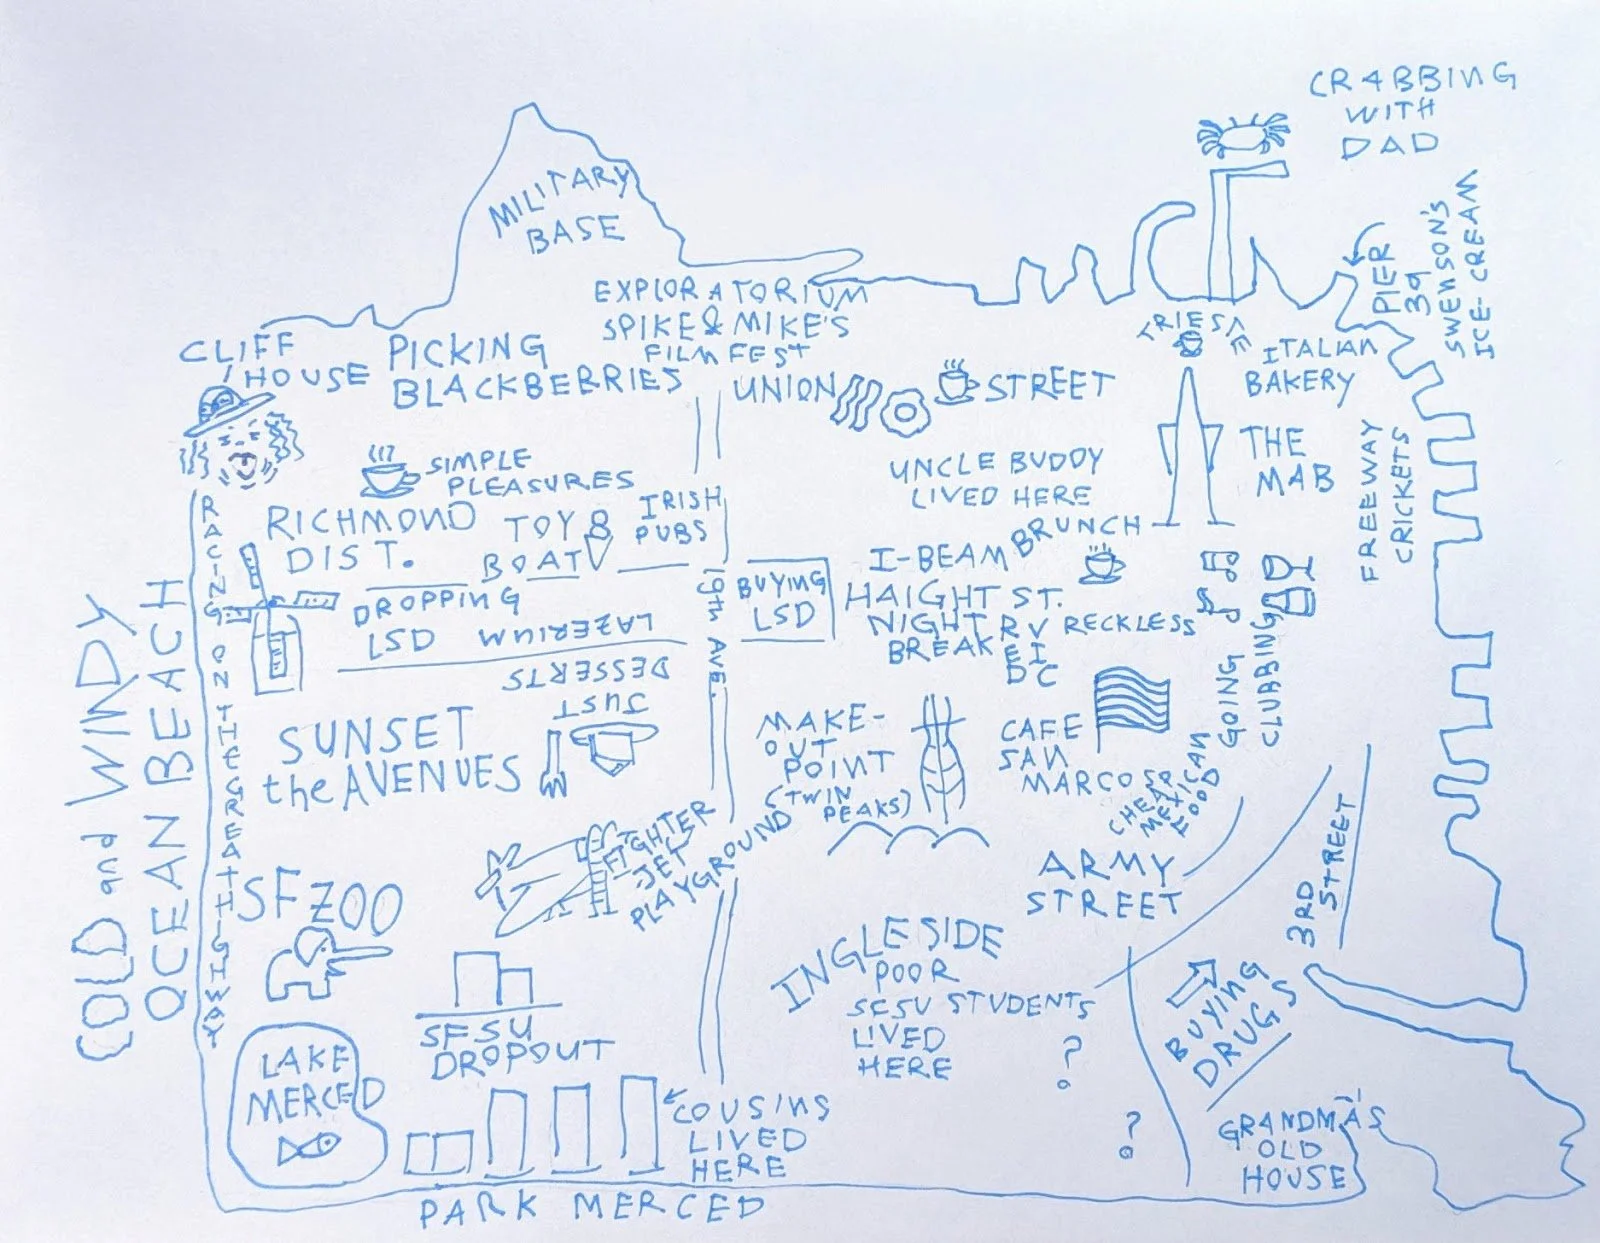 CRABBING
WITH
DAD
MILITARY
BASE
PIER
39
SWENSON'S
ICE-CREAM
EXPLORATORIUM
SPIKE & MIKE'S
FILM FEST
CLIFF
HOUSE
PICKING
BLACKBERRIES
UNION STREET
TRIESTE
ITALIAN
BAKERY
SIMPLE
PLEASURES
UNCLE BUDDY
LIVED HERE
THE
MAB
FREEWAY
CRICKETS
RICHMOND
DIST.
TOY
BOAT
IRISH
PUBS
BRUNCH
RACING ON THE GREAT HIGHWAY
COLD and WINDY
OCEAN BEACH
19TH AVE.
DROPPING
LSD
LAZERIUM
BUYING
LSD
I-BEAM
HAIGHT ST.
NIGHT
BREAK
RECKLESS
GOING
CLUBBING
JUST
DESSERTS
SUNSET
the AVENUES
MAKE-
OUT
POINT
(TWIN
PEAKS)
CAFE
SAN
MARCOS
CHEAP
MEXICAN
FOOD
FIGHTER
JET
PLAYGROUND
ARMY
STREET
3RD
STREET
SF ZOO
INGLESIDE
POOR
SFSU STUDENTS
LIVED
HERE
BUYING
DRUGS
SFSU
DROPOUT
LAKE
MERCED
COUSINS
LIVED
HERE
?
?
GRANDMA'S
OLD
HOUSE
PARK MERCED